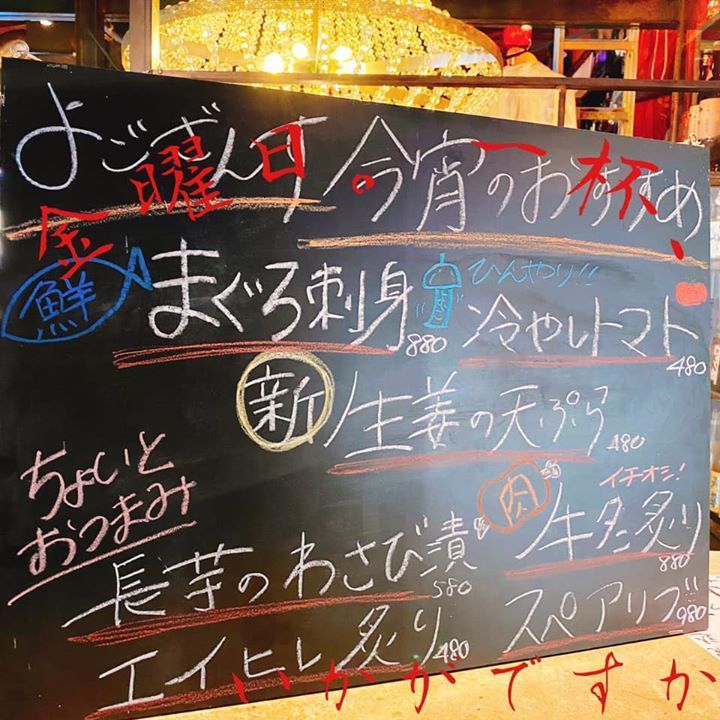 よござんす 今宵のおすすめ
金曜日。一杯、
鮮 まぐろ刺身 880
ひんやり!!
冷やしトマト 480
新生姜の天ぷら 480
ちょいと
おつまみ
イチオシ!
肉 牛タン炙り 880
長芋のわさび漬 580
スペアリブ!! 980
エイヒレ炙り 480
いかがですか